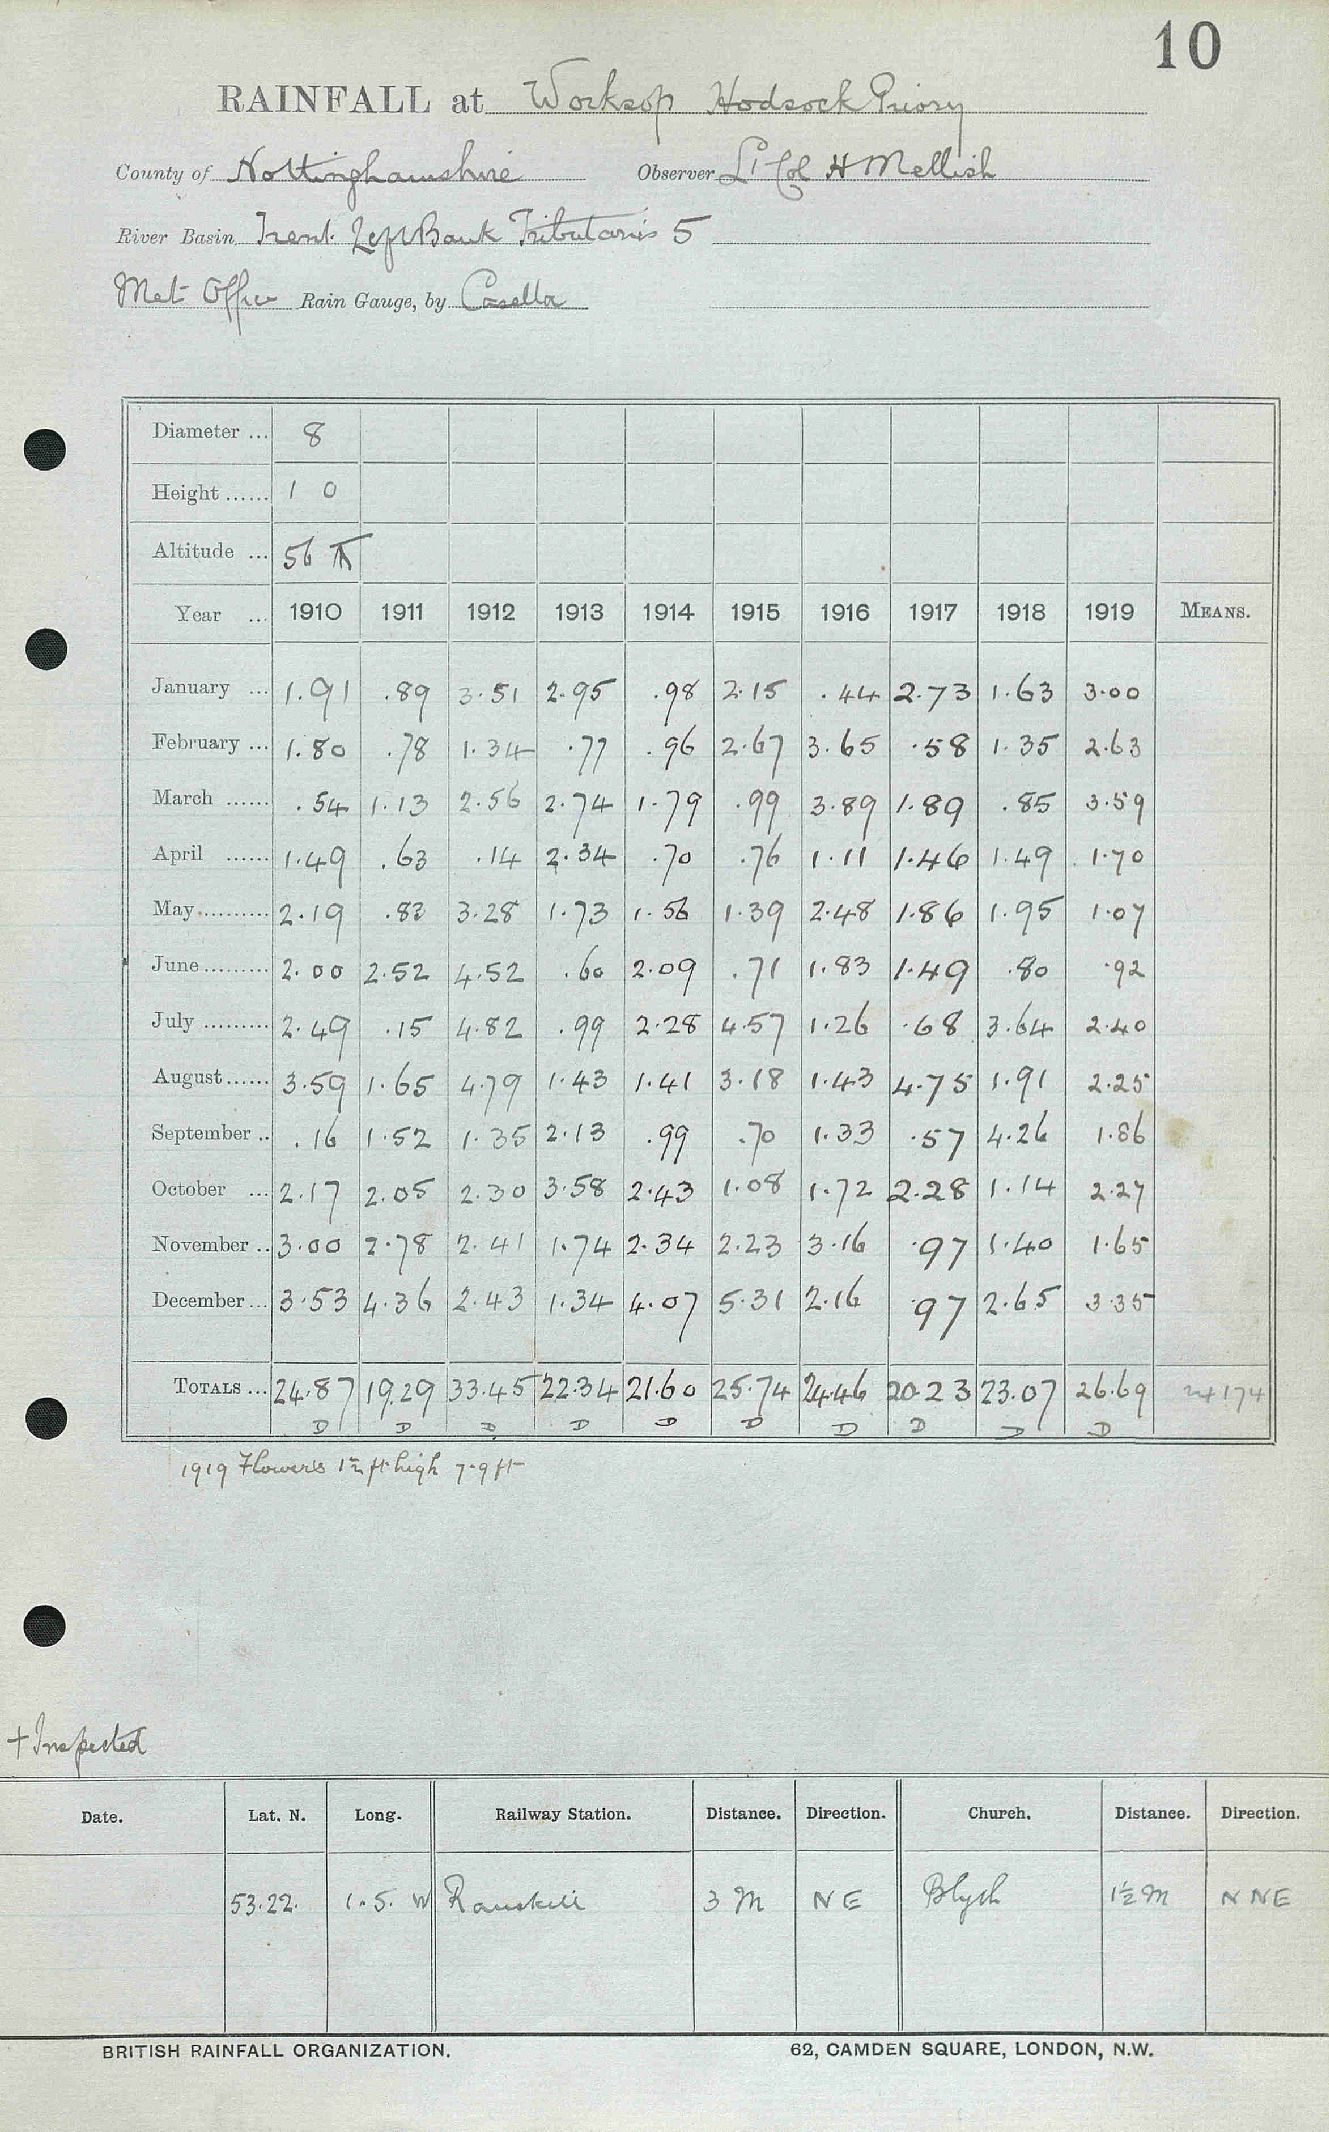 10
RAINFALL at Worksop Hodsock Priory
County of Nottinghamshire Observer Lt Col H Mellish
River Basin Trent Left Bank Tributaries 5
Met Office Rain Gauge, by Casella
Diameter ... 8
Height ...... 1 0
Altitude ... 56
Year ... 1910 1911 1912 1913 1914 1915 1916 1917 1918 1919 MEANS.
January ... 1.91 .89 3.51 2.95 .98 2.15 .44 2.73 1.63 3.00
February ... 1.80 .78 1.34 .77 .96 2.67 3.65 .58 1.35 2.63
March ...... .54 1.13 2.56 2.74 1.79 .99 3.89 1.89 .85 3.59
April ...... 1.49 .63 .14 2.34 .70 .76 1.11 1.46 1.49 1.70
May.......... 2.19 .83 3.28 1.73 1.56 1.39 2.48 1.86 1.95 1.07
June......... 2.00 2.52 4.52 .60 2.09 .71 1.83 1.49 .80 .92
July ......... 2.49 .15 4.82 .99 2.28 4.57 1.26 .68 3.64 2.40
August...... 3.59 1.65 4.79 1.43 1.41 3.18 1.43 4.75 1.91 2.25
September .. .16 1.52 1.35 2.13 .99 .70 1.33 .57 4.26 1.86
October ... 2.17 2.05 2.30 3.58 2.43 1.08 1.72 2.28 1.14 2.27
November .. 3.00 2.78 2.41 1.74 2.34 2.23 3.16 .97 1.40 1.65
December ... 3.53 4.36 2.43 1.34 4.07 5.31 2.16 .97 2.65 3.35
TOTALS ... 24.87 19.29 33.45 22.34 21.60 25.74 24.46 20.23 23.07 26.69 24174
D D D D D D D D D D
1919 Flowers 1½ ft high 7-9 ft
+ Inspected
Date. Lat. N. Long. Railway Station. Distance. Direction. Church. Distance. Direction.
53.22. 1.5. W Ranskill 3 M NE Blyth 1½ M NNE
BRITISH RAINFALL ORGANIZATION. 62, CAMDEN SQUARE, LONDON, N.W.